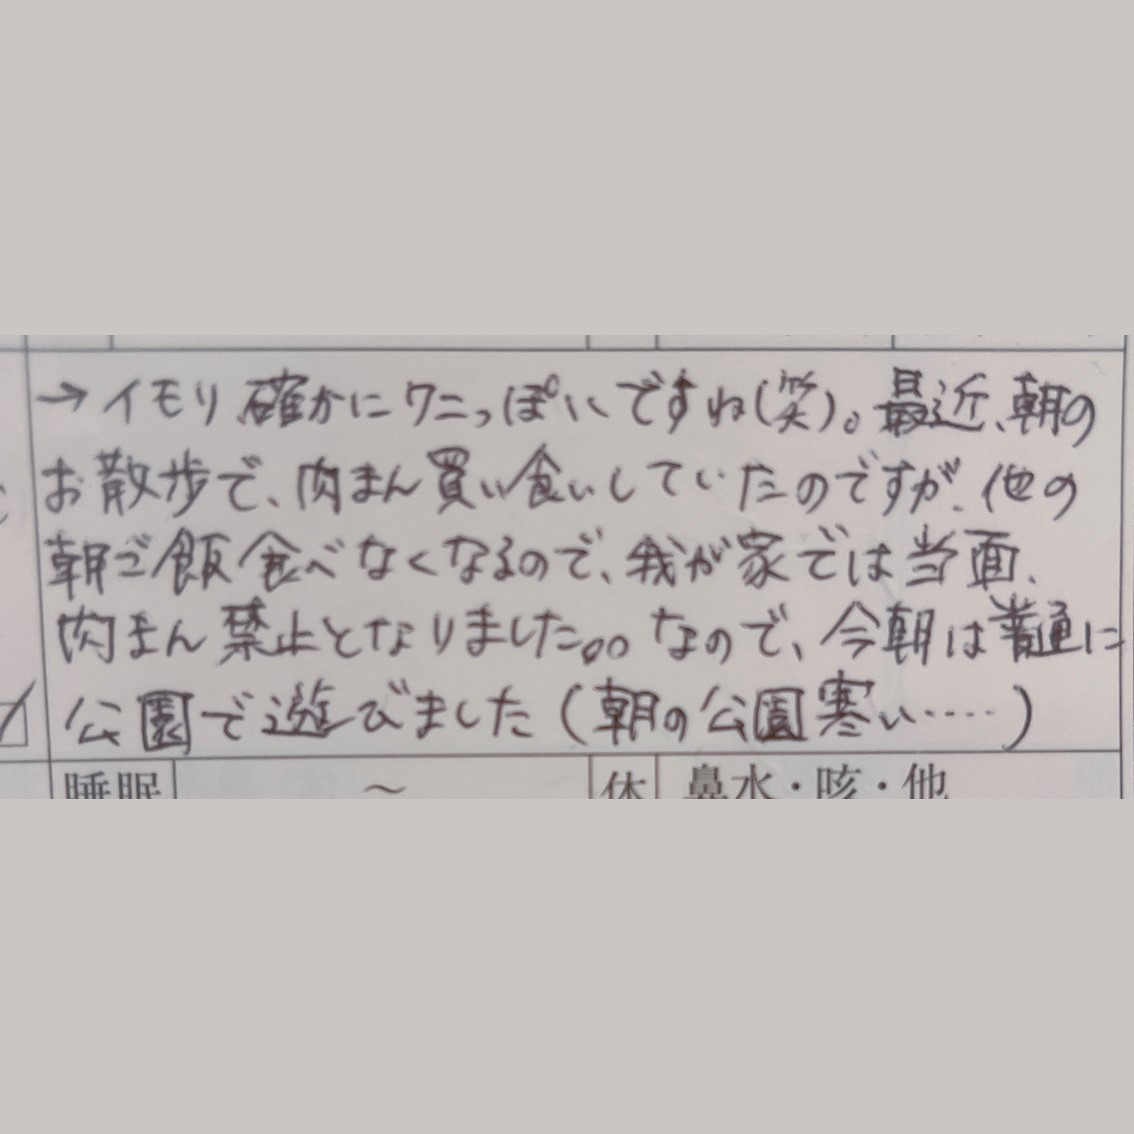 →イモリ確かにワニっぽいですね(笑)。最近、朝の
お散歩で、肉まん買い食いしていたのですが、他の
朝ご飯食べなくなるので、我が家では当面、
肉まん禁止となりました。。なので、今朝は普通に
公園で遊びました(朝の公園寒い……)
睡眠 ～ 休 鼻水・咳・他